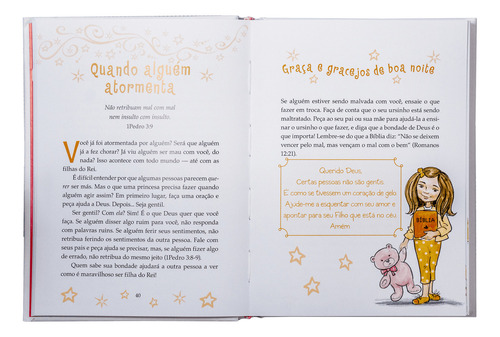 Quando alguém
atormenta
Não retribuam mal com mal
nem insulto com insulto.
1Pedro 3:9
Você já foi atormentada por alguém? Será que alguém
já a fez chorar? Já viu alguém ser mau com você, do
nada? Isso acontece com todo mundo — até com as
filhas do Rei.
É difícil entender por que algumas pessoas parecem que-
rer ser más. Mas o que uma princesa precisa fazer quando
alguém agir assim? Em primeiro lugar, faça uma oração e
peça ajuda a Deus. Depois... Seja gentil.
Ser gentil? Com ela? Sim! É o que Deus quer que você
faça. Se alguém disser algo ruim para você, não responda
com palavras ruins. Se alguém ferir seus sentimentos, não
retribua ferindo os sentimentos da outra pessoa. Fale com
seus pais e peça ajuda se precisar, mas, se alguém fizer algo
de errado, não retribua do mesmo jeito (1Pedro 3:8-9).
Quem sabe sua bondade ajudará a outra pessoa a ver
como é maravilhoso ser filha do Rei!
40
Graça e gracejos de boa noite
Se alguém estiver sendo malvada com você, ensaie o que
fazer em troca. Faça de conta que o seu ursinho está sendo
maltratado. Peça ao seu pai ou sua mãe para ajudá-la a ensi-
nar o ursinho o que fazer, e diga que a bondade de Deus é o
que importa! Lembre-se do que a Bíblia diz: "Não se deixem
vencer pelo mal, mas vençam o mal com o bem" (Romanos
12:21).
Querido Deus,
Certas pessoas não são gentis.
É como se tivessem um coração de gelo.
Ajude-me a esquentar com seu amor e
apontar para seu Filho que está no céu.
Amém.
BÍBLIA